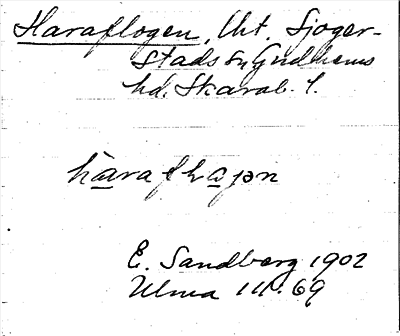 Haraflogen, Uht. Sjoger-
stads sn, Gudhems
hd. Skarab. l.
harafłogən
E. Sandberg 1902
Ulma 111:69